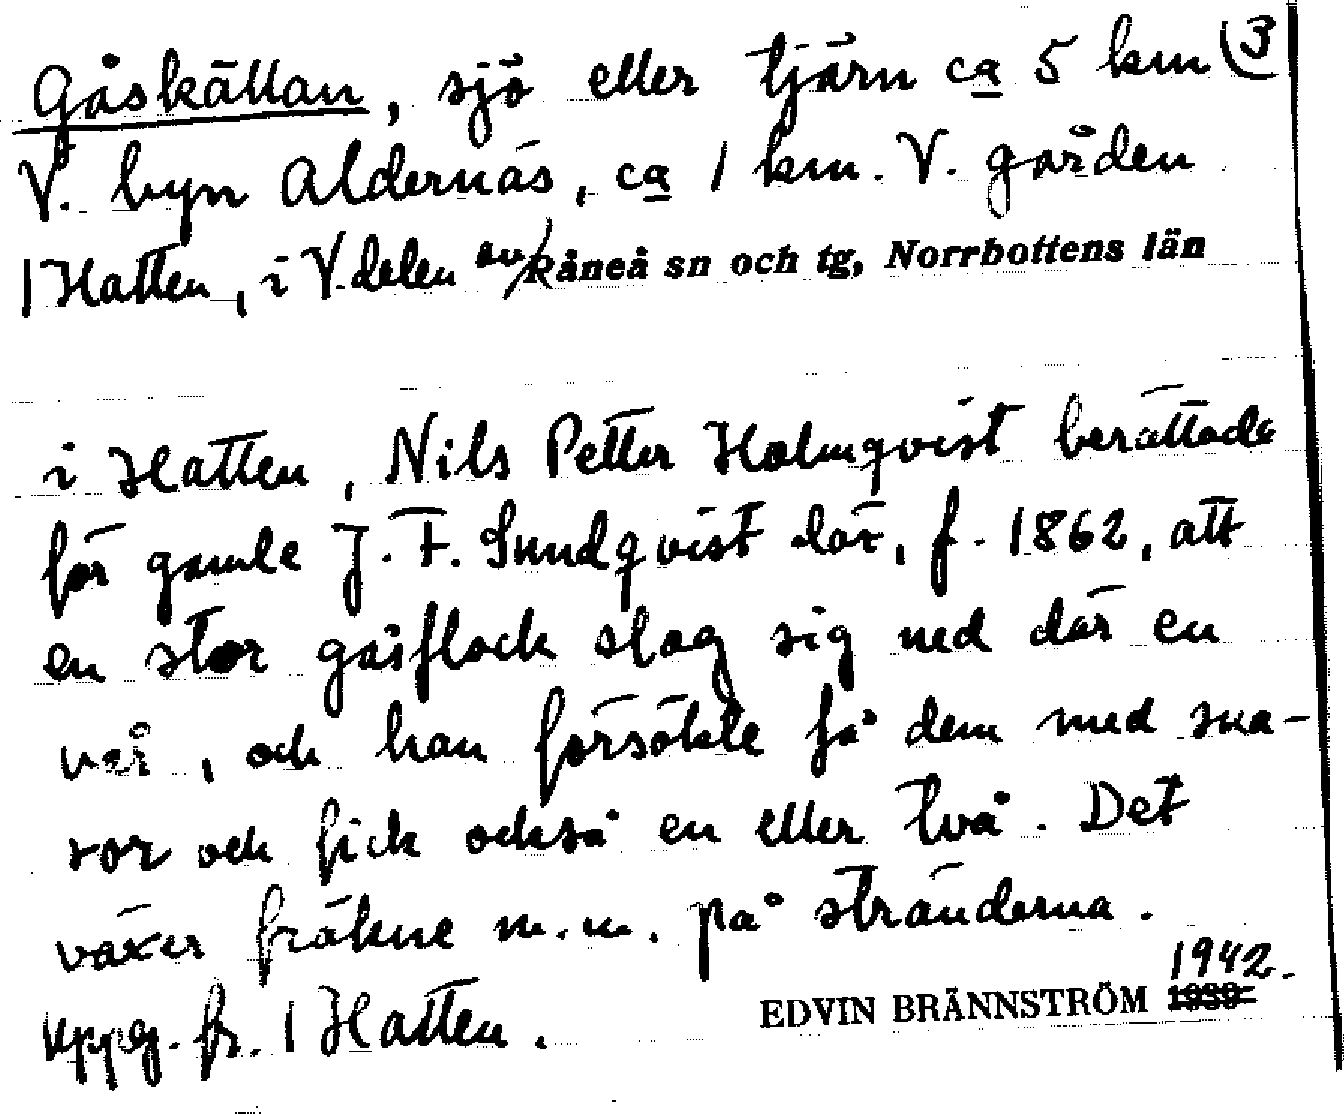 Gåskättan, sjö eller tjärn ca 5 km (3
V. byn Aldernäs, ca 1 km. V. gården
1 Hatten, i V. delen av Råneå sn och tg, Norrbottens län
i Hatten, Nils Petter Holmqvist berättade
för gamle J. F. Sundqvist där, f. 1862, att
en stor gåsflock slog sig ned där en
vår, och han försökte få dem med sna-
ror och fick också en eller två. Det
växer fräkne m.m. på stränderna.
uppg. fr. 1 Hatten.
EDVIN BRÄNNSTRÖM 1939 1942.